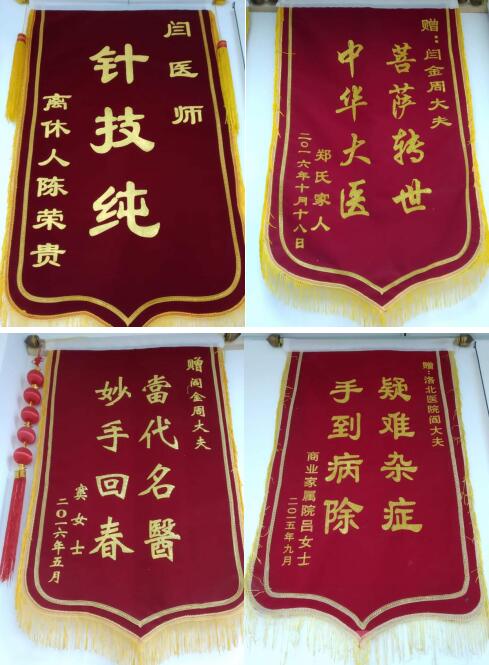 闫医师
针技纯
离休人陈荣贵
赠：闫金周大夫
菩萨转世
中华大医
郑氏家人
二〇一六年十月十八日
赠阎金周大夫
當代名醫
妙手回春
窦女士
二〇一六年五月
赠：洛北医院阎大夫
疑难杂症
手到病除
商业家属院吕女士
二〇一五年九月